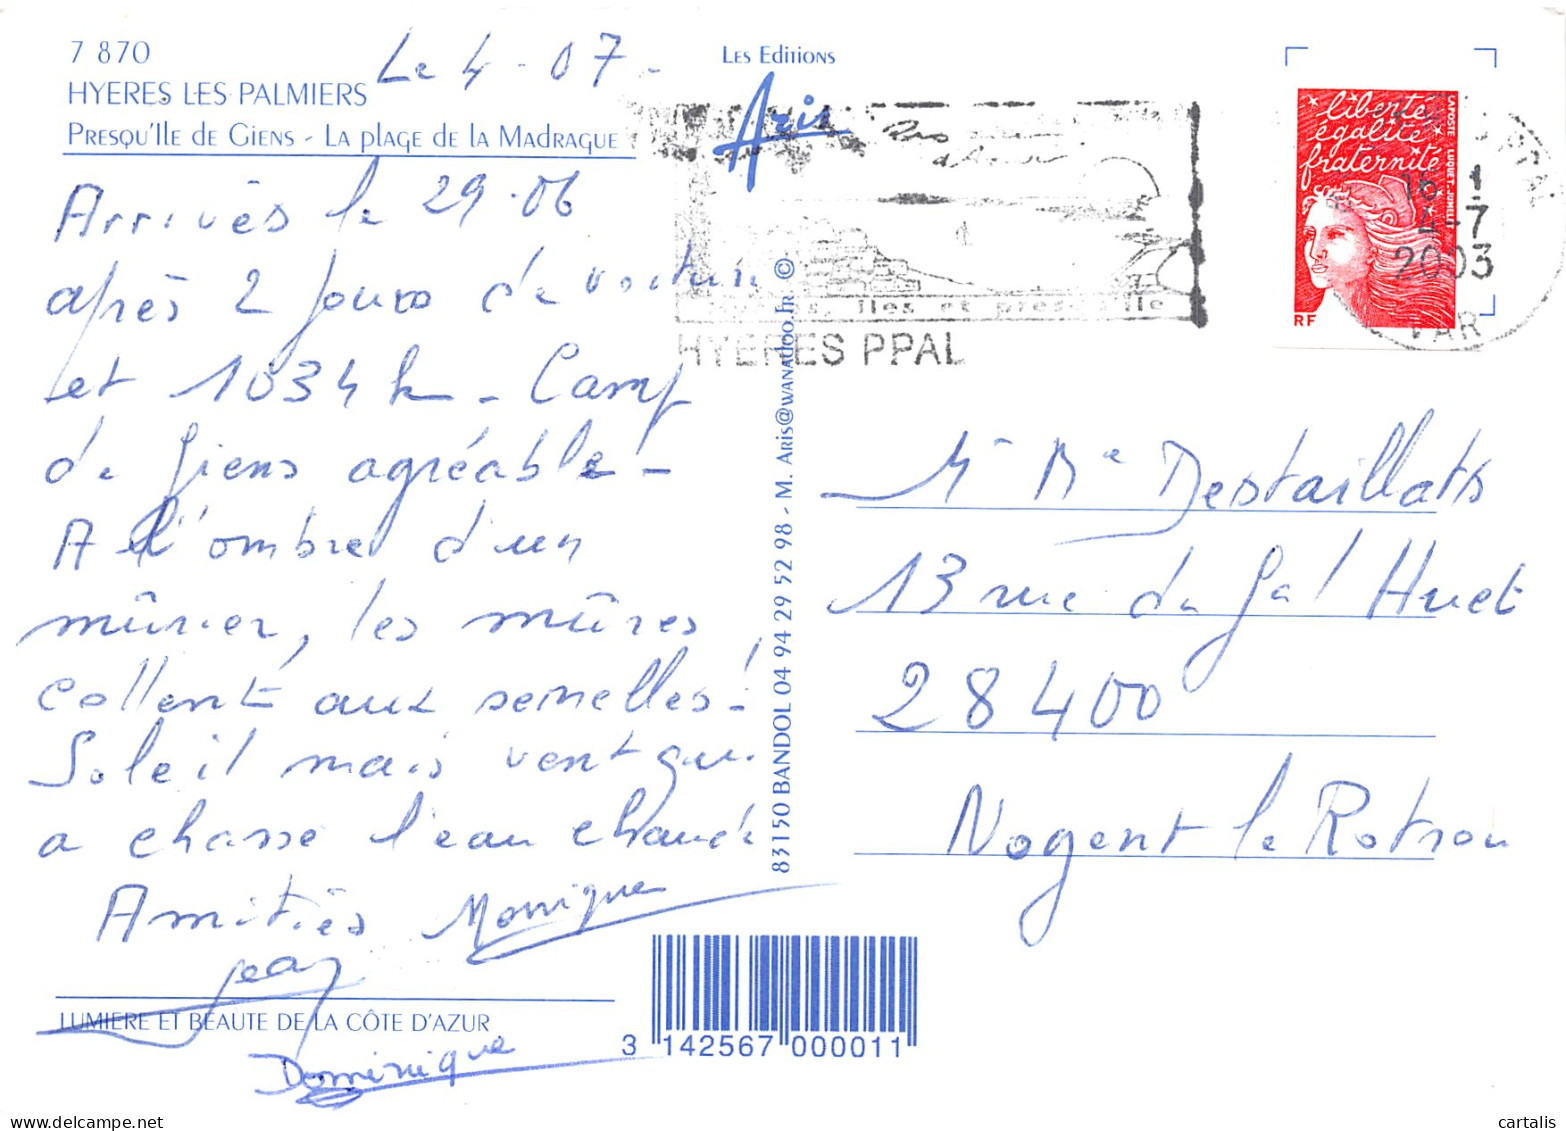 7 870
HYERES LES PALMIERS
PRESQU'ILE DE GIENS - LA PLAGE DE LA MADRAGUE
Le 4-07-
Arrivés le 29-06
après 2 jours de voiture
et 1034 k - Camp
de Giens agréable -
A l'ombre d'un
mûrier, les mûres
collent aux semelles!
Soleil mais vent qui
a chassé l'eau chaude
Amitiés Monique
Jean
Dominique
LUMIERE ET BEAUTE DE LA CÔTE D'AZUR
LES EDITIONS
Aris
83150 BANDOL 04 94 29 52 98 - M. ARIS@WANADOO.FR ©
îles et presqu'île
HYERES PPAL
liberté
égalité
fraternité
LA POSTE LUQUET-JUMELET
RF
16 H
4-7
2003
VAR
Mr Me Destaillats
13 rue du Gal Huet
28400
Nogent le Rotrou
3 142567 000011
cartalis